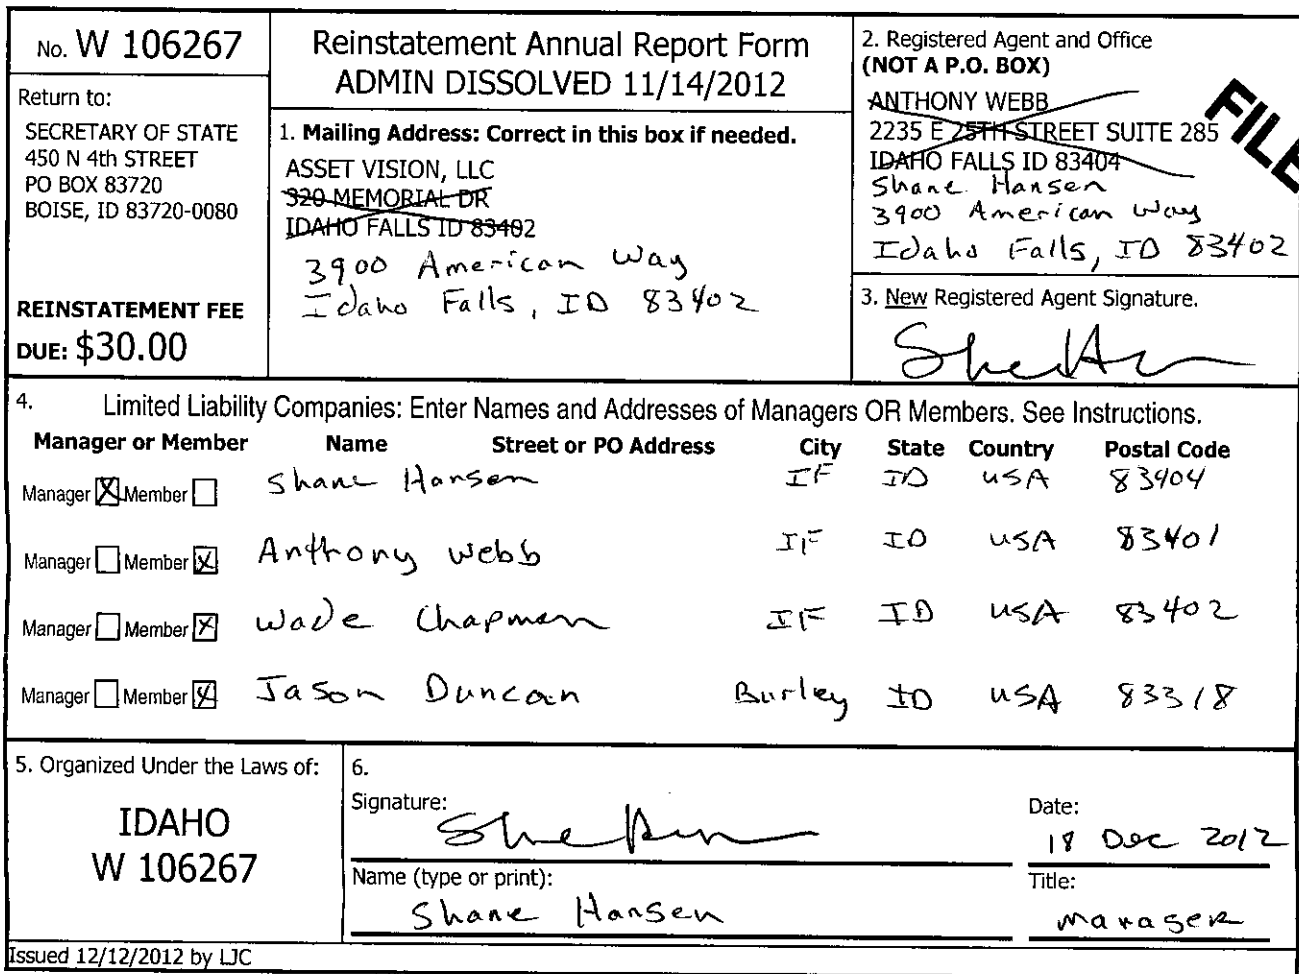 No. W 106267
Return to:
SECRETARY OF STATE
450 N 4th STREET
PO BOX 83720
BOISE, ID 83720-0080
REINSTATEMENT FEE
DUE: $30.00
Reinstatement Annual Report Form
ADMIN DISSOLVED 11/14/2012
1. Mailing Address: Correct in this box if needed.
ASSET VISION, LLC
320 MEMORIAL DR
IDAHO FALLS ID 83402
3900 American Way
Idaho Falls, ID 83402
2. Registered Agent and Office
(NOT A P.O. BOX)
ANTHONY WEBB
2235 E 25TH STREET SUITE 285
IDAHO FALLS ID 83404
Shane Hansen
3900 American Way
Idaho Falls, ID 83402
FILE
3. New Registered Agent Signature.
4. Limited Liability Companies: Enter Names and Addresses of Managers OR Members. See Instructions.
Manager or Member Name Street or PO Address City State Country Postal Code
Manager X Member Shane Hansen IF ID USA 83404
Manager Member X Anthony Webb IF ID USA 83401
Manager Member X Wade Chapman IF ID USA 83402
Manager Member X Jason Duncan Burley ID USA 83318
5. Organized Under the Laws of:
IDAHO
W 106267
6.
Signature:
Date:
18 Dec 2012
Name (type or print):
Shane Hansen
Title:
Manager
Issued 12/12/2012 by LJC